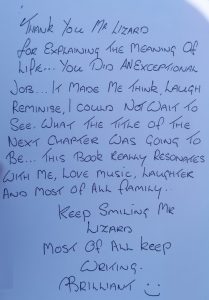 THANK YOU MR LIZARD
FOR EXPLAINING THE MEANING OF
LIFE... YOU DID AN EXCEPTIONAL
JOB... IT MADE ME THINK, LAUGH
REMINISE, I COULD NOT WAIT TO
SEE. WHAT THE TITLE OF THE
NEXT CHAPTER WAS GOING TO
BE... THIS BOOK REALLY RESONATES
WITH ME, LOVE MUSIC, LAUGHTER
AND MOST OF ALL FAMILY..
KEEP SMILING MR
LIZARD
MOST OF ALL KEEP
WRITING.
BRILLIANT